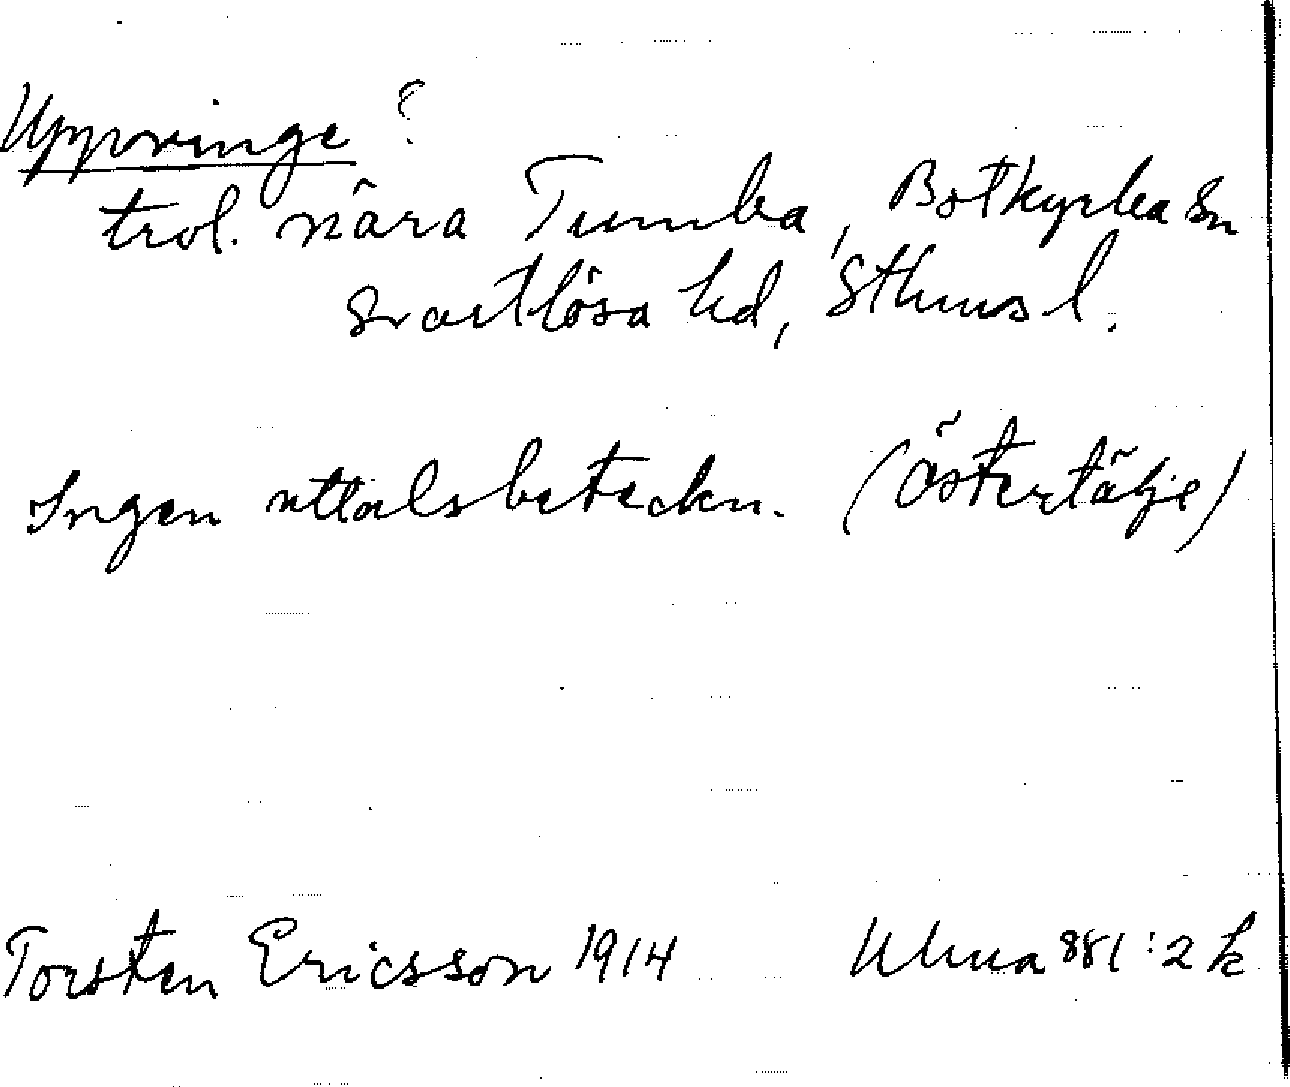 Uppvinge ?
trol. nära Tumba, Botkyrka sn
Svartlösa hd, Sthms l.
Ingen uttalsbeteckn. (Östertälje)
Torsten Ericsson 1914 Ulma 881:2 k